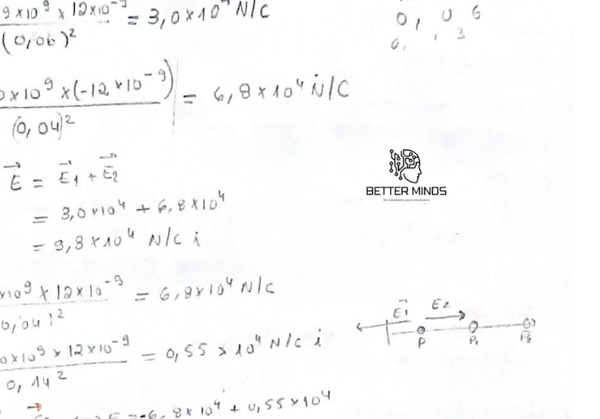 9×10⁹ × 12×10⁻⁹ / (0,06)² = 3,0×10⁴ N/C
0, 0 6
0, 1 3
0×10⁹ × (-12×10⁻⁹) / (0,04)² = 6,8×10⁴ N/C
E⃗ = E⃗1 + E⃗2
= 3,0×10⁴ + 6,8×10⁴
= 9,8×10⁴ N/C i
BETTER MINDS
×10⁹ × 12×10⁻⁹ / 0,04)² = 6,8×10⁴ N/C
0×10⁹ × 12×10⁻⁹ / 0,14² = 0,55 × 10⁴ N/C i
E⃗1 E2
P P1 P2
E = -6,8×10⁴ + 0,55×10⁴